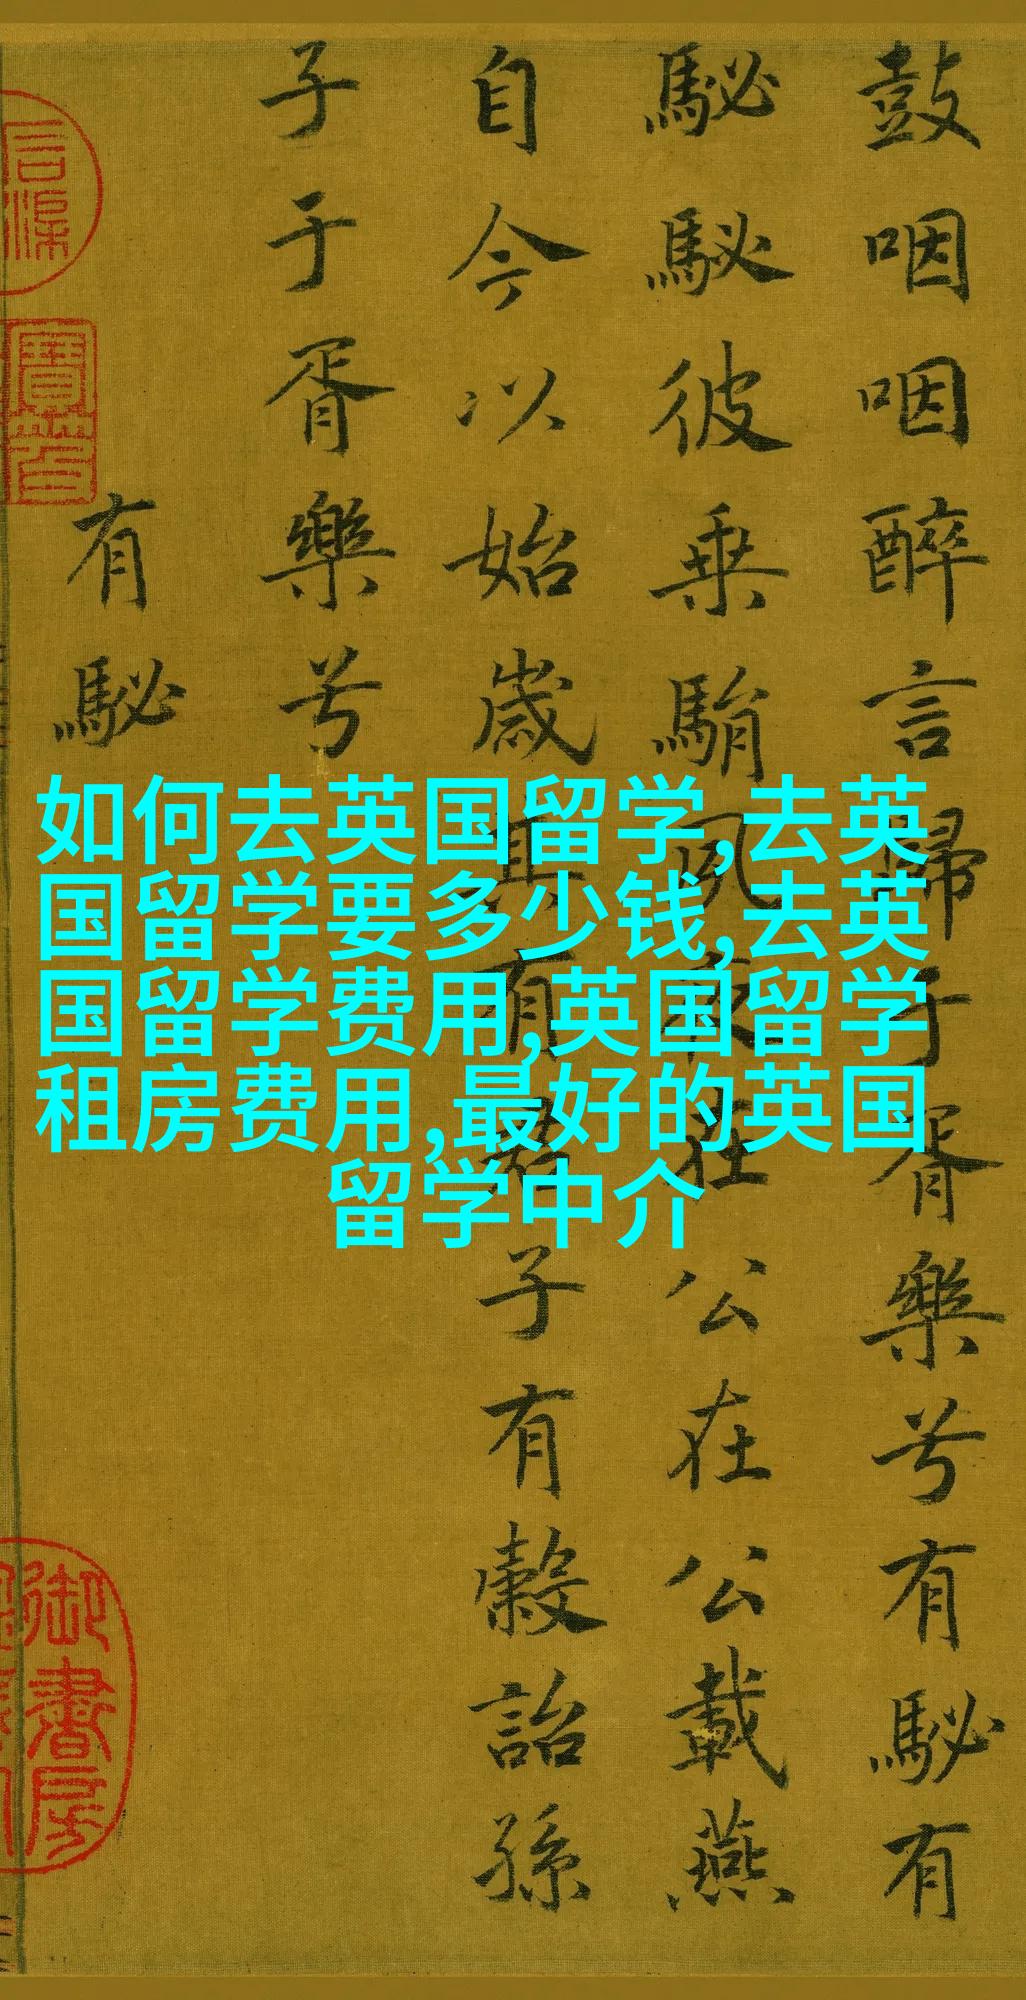 鼓咽咽醉言歸于胥樂兮有駜有
駜駜彼乗駽夙夜在公在公載燕
自今以始歲其有君子有穀詒孫
子于胥樂兮
有駜
寶笈
御書房
如何去英国留学,去英
国留学要多少钱,去英
国留学费用,英国留学
租房费用,最好的英国
留学中介